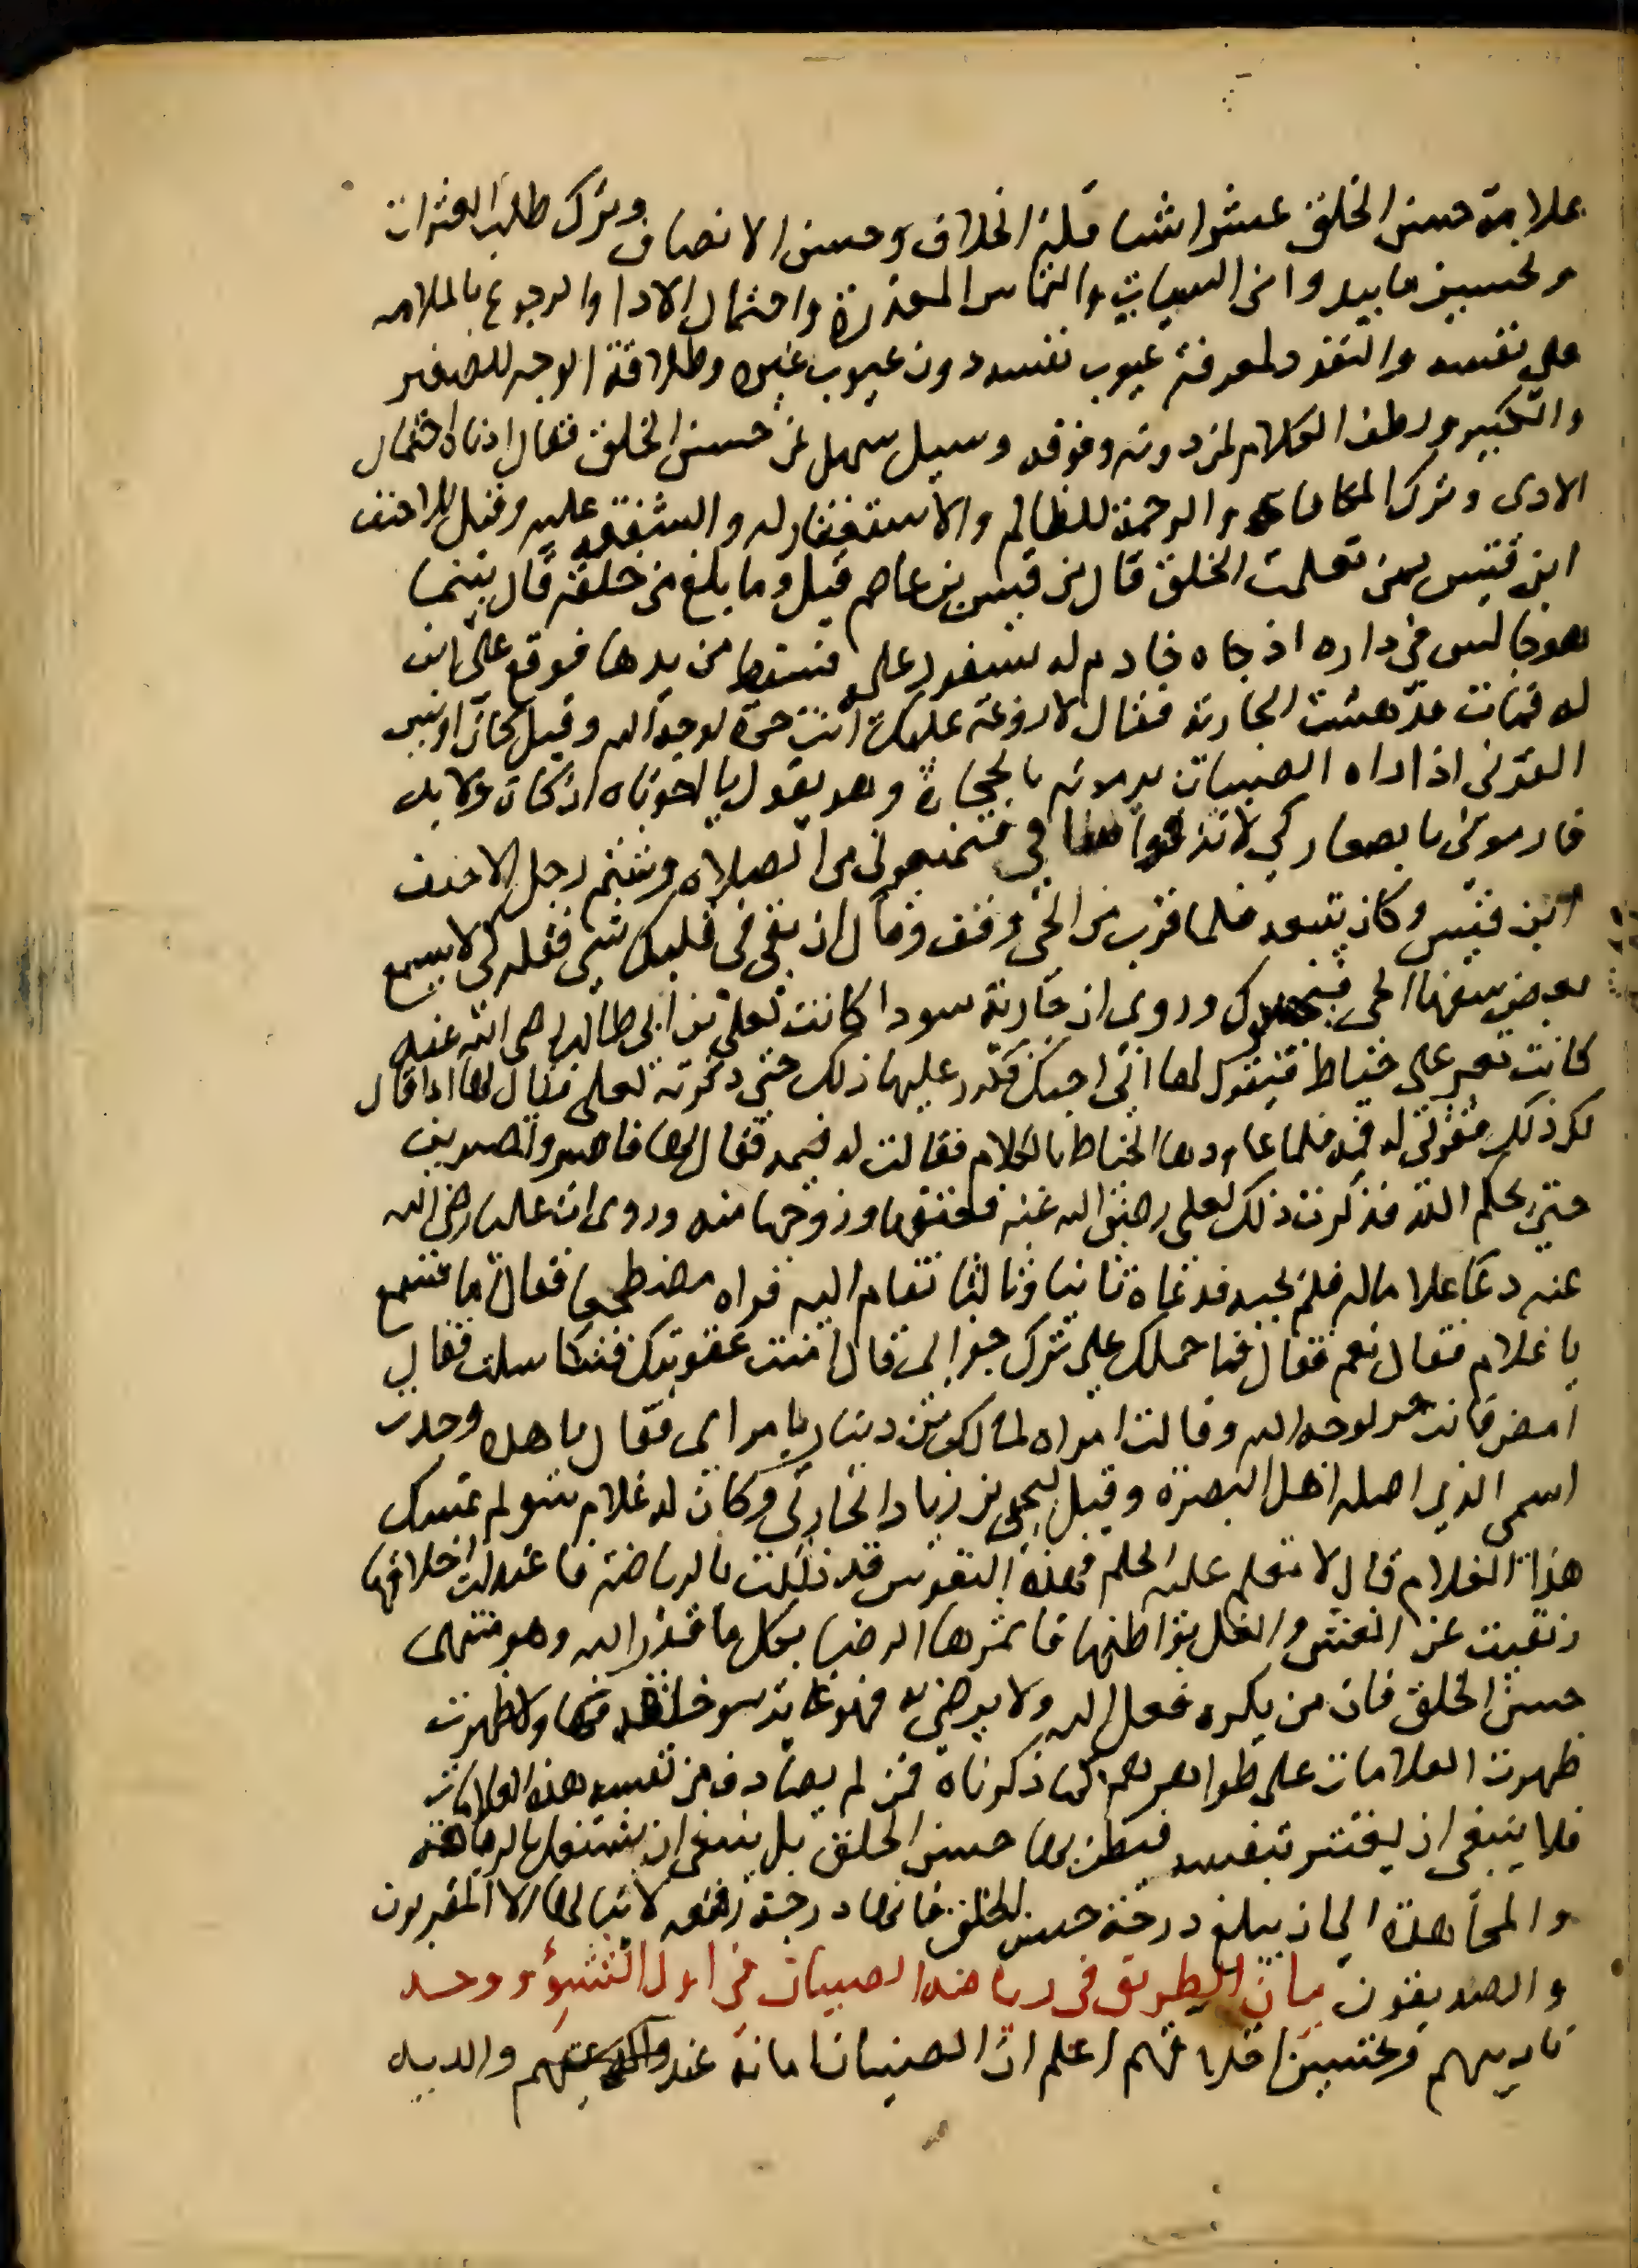 علامة حسن الخلق عشر اشيا قلة الخلاف وحسن الانصاف وترك طلب العثرات
وتحسين ما يبدوا من السيات والتماس المعذرة واحتمال الاذا والرجوع بالملامه
على نفسه والتفرد لمعرفة عيوب نفسه دون عيوب غيره وطلاقة الوجه للصغير
والكبير ولطف الكلام لمن دونه وفوقه وسيل سهل عن حسن الخلق فقال ادناه احتمال
الاذى وترك المكافاه والرحمة للظالم والاستغفار له والشفقه عليه وقيل للاحنف
ابن قيس ممن تعلمت الخلق قال من قيس بن عاصم قيل وما بلغ من خلقه قال بينما
هو جالس في داره اذ جاه خادم له بسفود على فسقط من يدها فوقع على ابن
له فمات فدهشت الجارية فقال لا روعة عليك انت حرة لوجه الله وقيل كان اويس
القرني اذا راه الصبيان يرمونه بالحجارة وهو يقول يا اخوتاه ان كان ولا بد
فارموني بالصغار كي لا تدموا ساقي فتمنعوني من الصلاه وشتم رجل الاحنف
ابن قيس وكان يتبعه فلما قرب من الحي وقف وقال ان بقي في قلبك شي فقله كي لا يسمع
بعض سفها الحي وروي ان جارية سودا كانت لعلي بن ابي طالب رضي الله عنه
كانت تمر على خياط فيقول لها اني احبك فكرر عليها ذلك حتى ذكرته لعلي فقال لها اذا قال
لك ذلك فقولي له فمه فلما عاودها الخياط بالكلام فقالت له فمه فقال لها فاصبر وتصبرين
حتى يحكم الله فذكرت ذلك لعلي رضي الله عنه فعتقها وزوجها منه وروي ان عليا رضي الله
عنه دعا غلاما له فلم يجبه فدعاه ثانيا وثالثا فقام اليه فراه مضطجعا فقال اما تسمع
يا غلام فقال نعم فقال فما حملك على ترك جوابي قال امنت عقوبتك فتكاسلت فقال
امض فانت حر لوجه الله وقالت امراه لمالك بن دينار يا مرائي فقال يا هذه وجدت
اسمي الذي اضله اهل البصرة وقيل ليحيى بن زياد الحارثي وكان له غلام سو لم تمسك
هذا الغلام قال لا تعلم عليه الحلم فهذه النفوس قد ذللت بالرياضة فاعتدلت اخلاقها
ونقيت عن الغش والغل بواطنها فاثمرها الرضا بكل ما قدر الله وهو منتهى
حسن الخلق فان من يكره فعل الله ولا يرضى به فهو غاية سو خلقه ظهرت
ظهرت العلامات على ظواهرهم كما ذكرناه فمن لم يصادف من نفسه هذه العلامات
فلا ينبغي ان يغتر بنفسه فيظن بها حسن الخلق بل ينبغي ان يشتغل بالرياضة
والمجاهدة الى ان يبلغ درجة حسن الخلق فانها درجة رفيعه لا ينالها الا المقربون
والصديقون بيان الطريق في رياضه الصبيان في اول النشوء ووجه
تاديبهم وتحسين اخلاقهم اعلم ان الصبيان امانة عند والديهم والديه